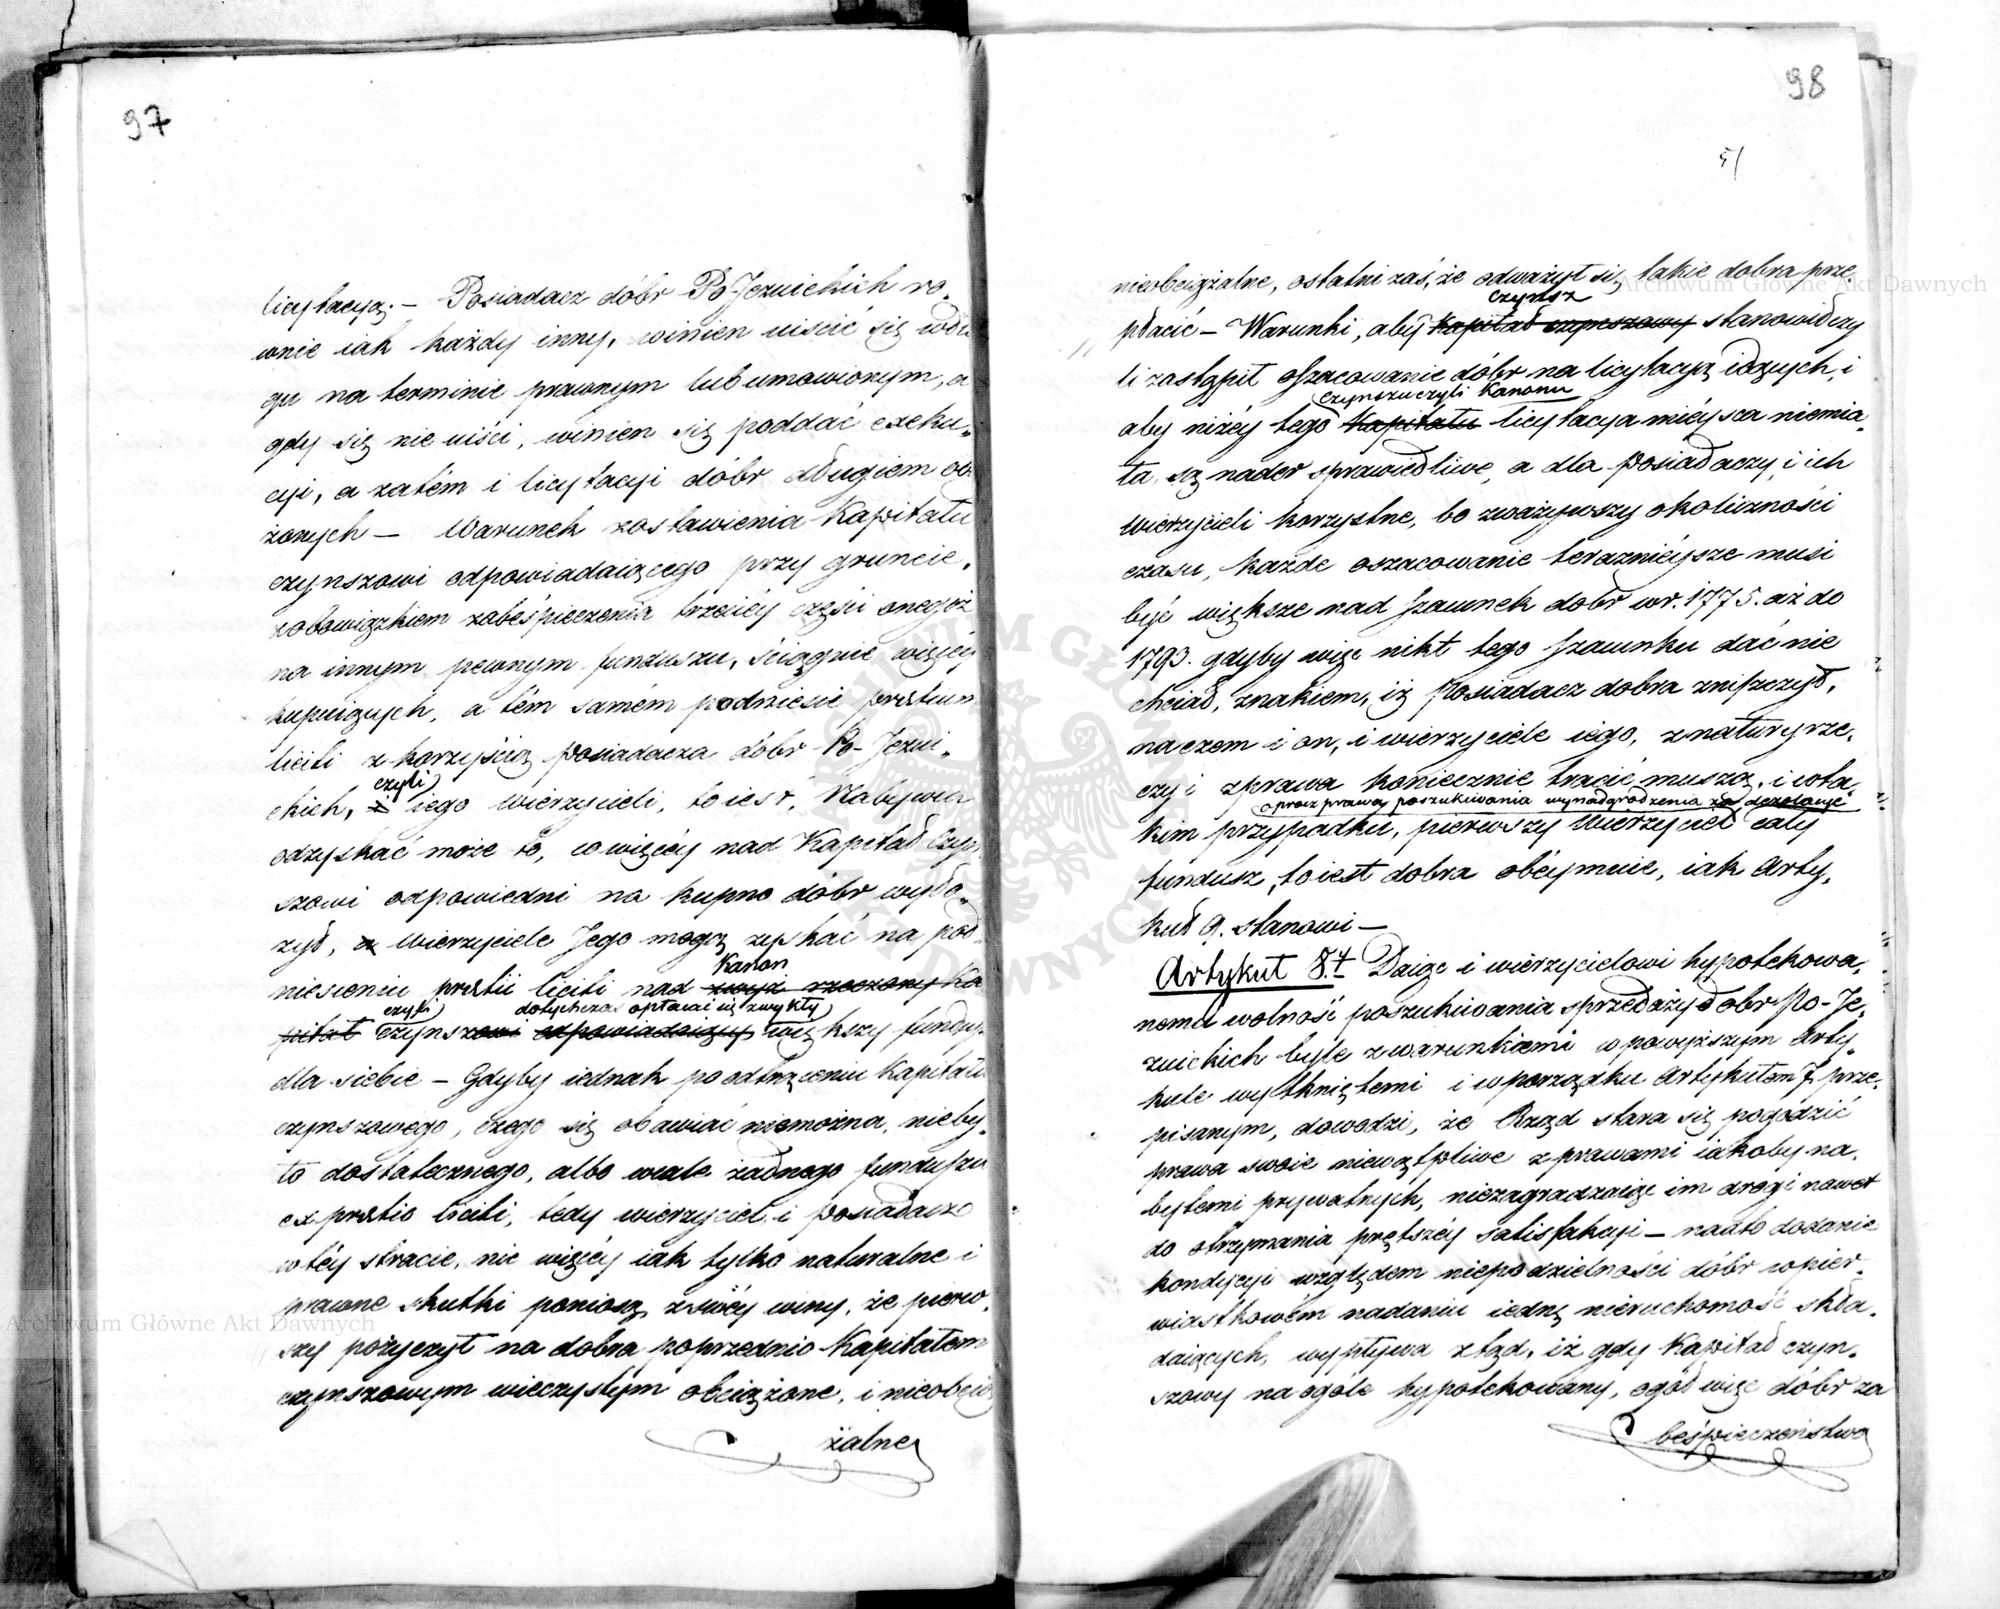 97
licytacyą. — Posiadacz dóbr Po-Jezuickich ró-
wnie iak każdy inny, winien uiścić się w dłu
gu na terminie prawnym lub umowionym, a
gdy się nie uiści, winien się poddać exeku-
cyi, a zatém i licytacyi dóbr długiem ob
żonych — Warunek zostawienia Kapitału
czynszowi odpowiadaiącego przy gruncie,
z obowiązkiem zabeśpieczenia trzeciéy części onegoż
na innym pewnym funduszu, ściągnie więcéy
kupuiących, a tém samém podniesie prætium
liciti z korzyścią Posiadacza dóbr Po-Jezui-
czyli
ckich, i iego wierzycieli, to iest, Nabywca
odzyskać może to, co więcéy nad Kapitał Czyn
szowi odpowiedni na kupno dóbr wyło-
żył, a Wierzyciele Jego mogą zyskać na pod-
Kanon
niesieniu prætii liciti nad zwyż rzeczony Ka
czyli dotychczas opłacać się zwykły
pitał Czynszowi odpowiadaiący większy fundusz
dla siebie — Gdyby iednak po odtrąceniu Kapitału
czynszowego, czego się obawiać niemożna, nieby-
ło dostatecznego, albo wcale żadnego funduszu
ex prætio liciti, tedy wierzyciel i Posiadacz
w téy stracie, nic więcéy iak tylko naturalne i
prawne skutki poniosą z swéy winy, że pierw-
szy pożyczył na dobra poprzednio Kapitałem
czynszowym wieczystym obciążone, i nieobcią
żalne
98
5/
nieobciążalne, ostatni zaś, że odważył się takie dobra prze-
czynsz
płacić — Warunki, aby Kapitał czynszowy stanowił czy
li zastąpił oszacowanie dóbr na licytacyą idących, i
czynszu czyli Kanonu
aby niżéy tego Kapitału licytacya miéysca niemia-
ła, są nader sprawiedliwe, a dla Posiadaczy i ich
Wierzycieli korzystne, bo zważywszy okoliczności
czasu, każde oszacowanie teraznieysze musi
być większe nad szacunek dobr w r. 1775. aż do
1793. gdyby więc nikt tego szacunku dać nie
chciał, znakiem, iż Posiadacz dobra zniszczył,
na czem i on, i wierzyciele iego, z natury rze-
czy i zprawa koniecznie tracić muszą, i w ta-
oprocz prawa poszukiwania wynadgrodzenia za dezolacyę
kim przypadku, pierwszy Wierzyciel cały
fundusz, to iest dobra obéymuie, iak Arty-
kuł 9. stanowi —
Artykuł 8.ý Daiąc i wierzycielowi hypotekowa-
nemu wolność poszukiwania sprzedaży dobr Po-Je-
zuickich byle z warunkami w powyższym Arty-
kule wytkniętemi i w porządku Artykułem 7. prze-
pisanym, dowodzi, że Rząd stara się pogodzić
prawa swoie niewątpliwe z prawami iakoby na-
bytemi prywatnych, niezagradzaiąc im drogi nawet
do otrzymania prętszéy satisfakcyi — nadto dodanie
kondycyi względem niepodzielności dóbr w pier-
wiastkowém nadaniu iedną nieruchomość skła-
daiących, wypływa ztąd, iż gdy Kapitał czyn-
szowy na ogóle hypotekowany, ogół więc dóbr za
beśpieczeństwo